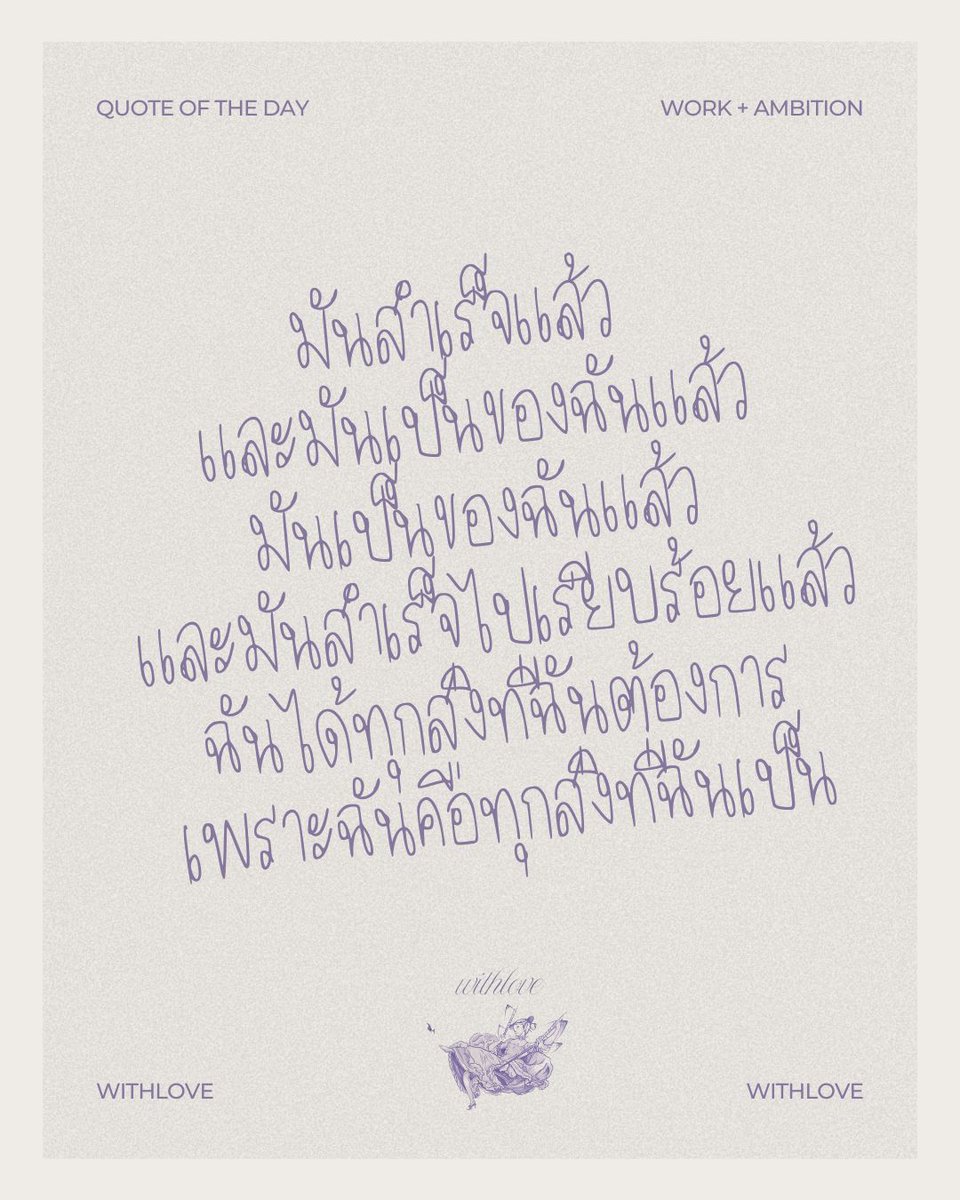 QUOTE OF THE DAY
WORK + AMBITION
มันสำเร็จแล้ว
และมันเป็นของฉันแล้ว
มันเป็นของฉันแล้ว
และมันสำเร็จไปเรียบร้อยแล้ว
ฉันได้ทุกสิ่งที่ฉันต้องการ
เพราะฉันคือทุกสิ่งที่ฉันเป็น
withlove
WITHLOVE
WITHLOVE